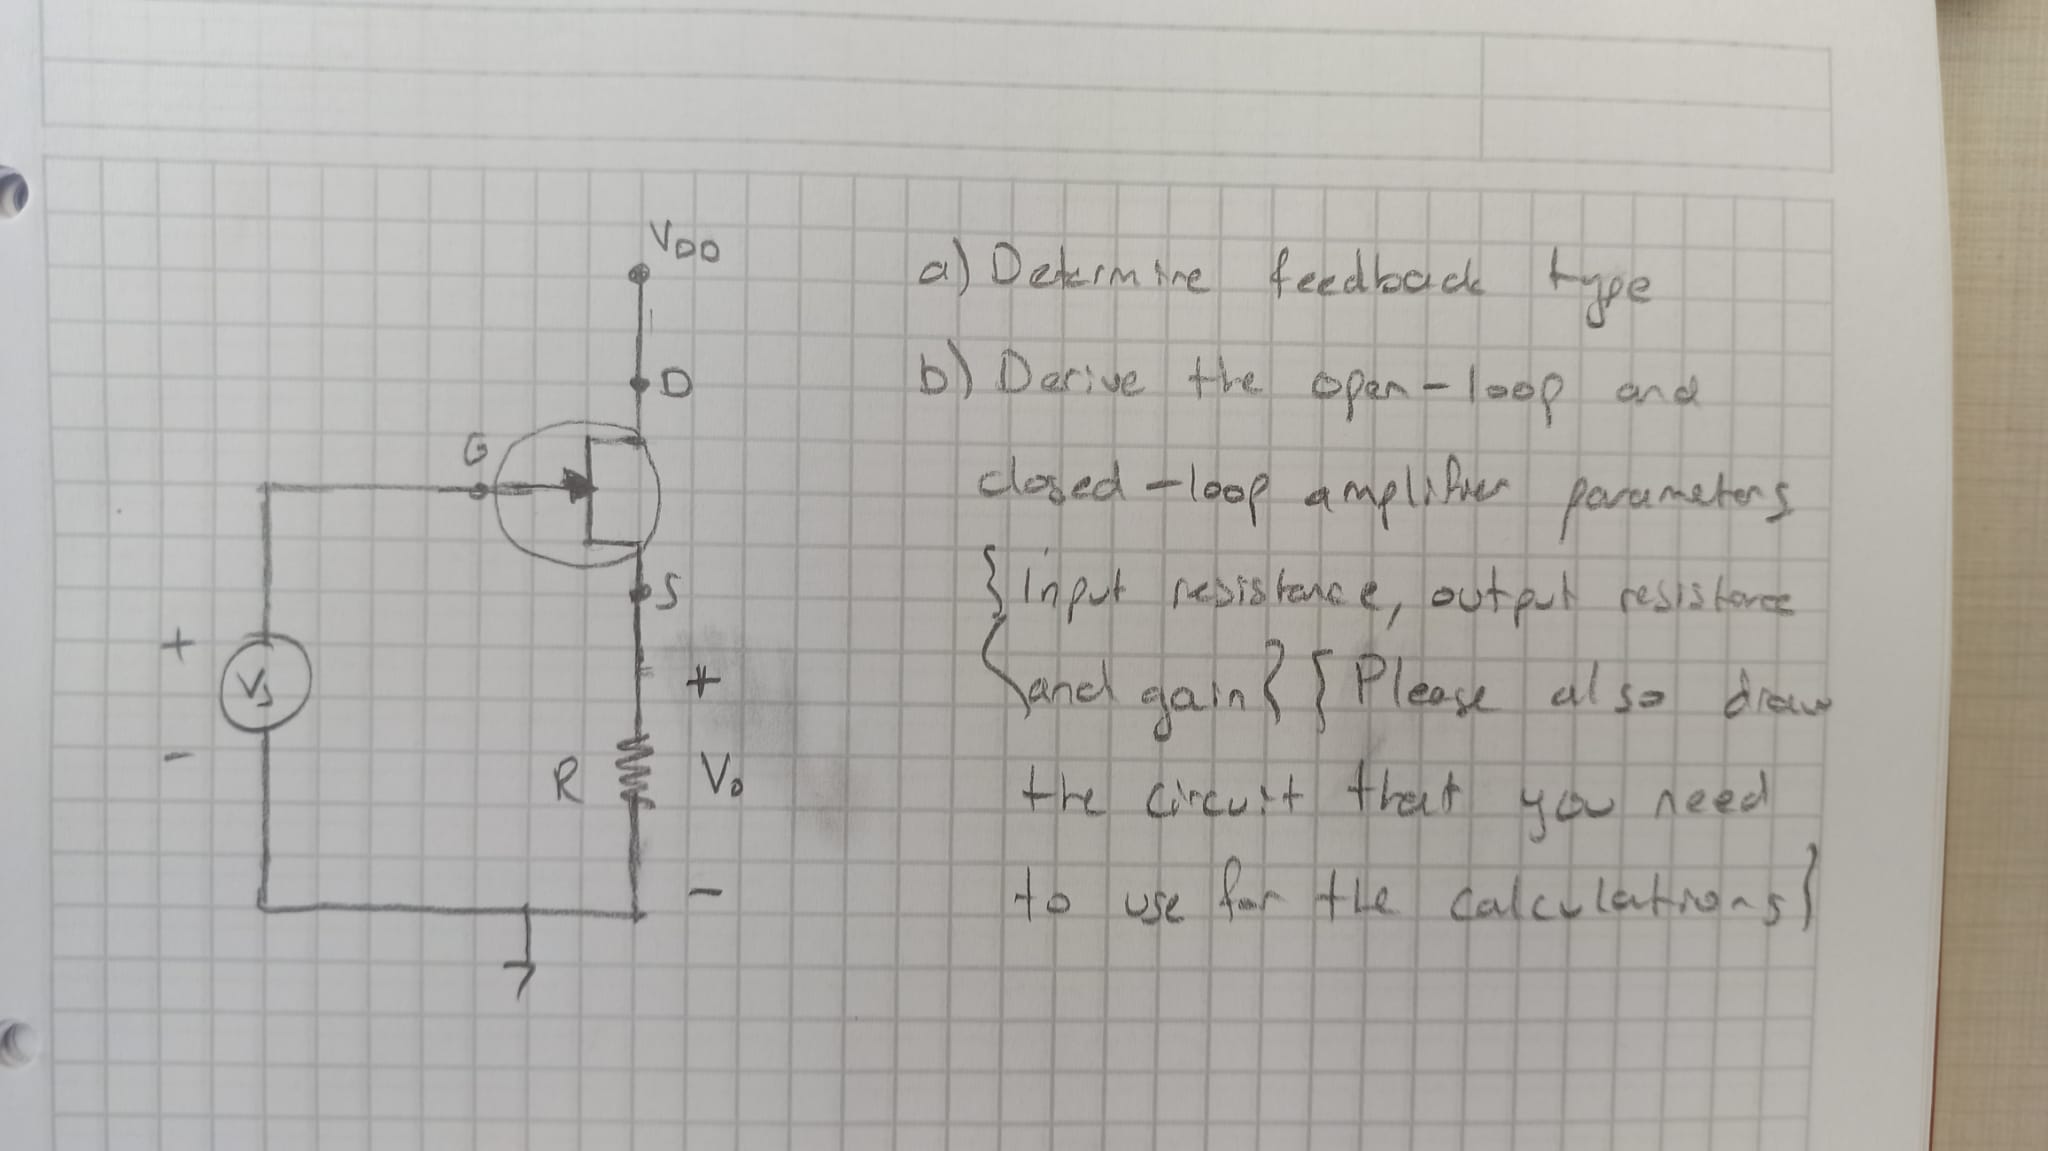 VDD
D
G
S
+
Vs
-
+
R
Vo
-
a) Determine feedback type
b) Derive the open-loop and
closed-loop amplifier parameters
{input resistance, output resistance
and gain} {Please also draw
the circuit that you need
to use for the calculations}